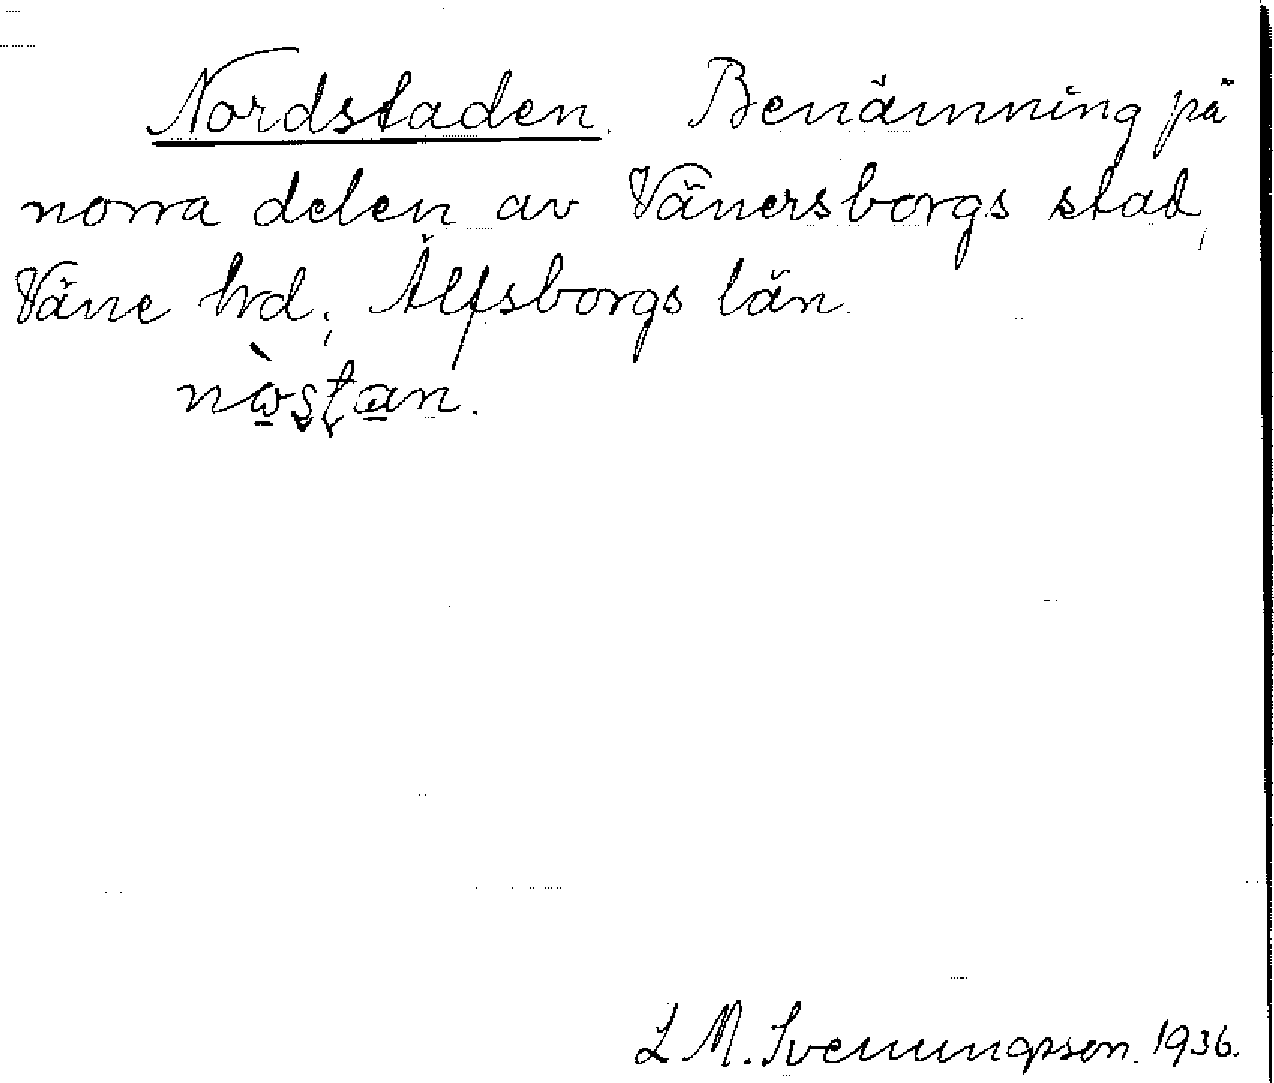 Nordstaden. Benämning på
norra delen av Vänersborgs stad,
Väne hd, Älfsborgs län.
nòstan.
L M. Svenungsson. 1936.